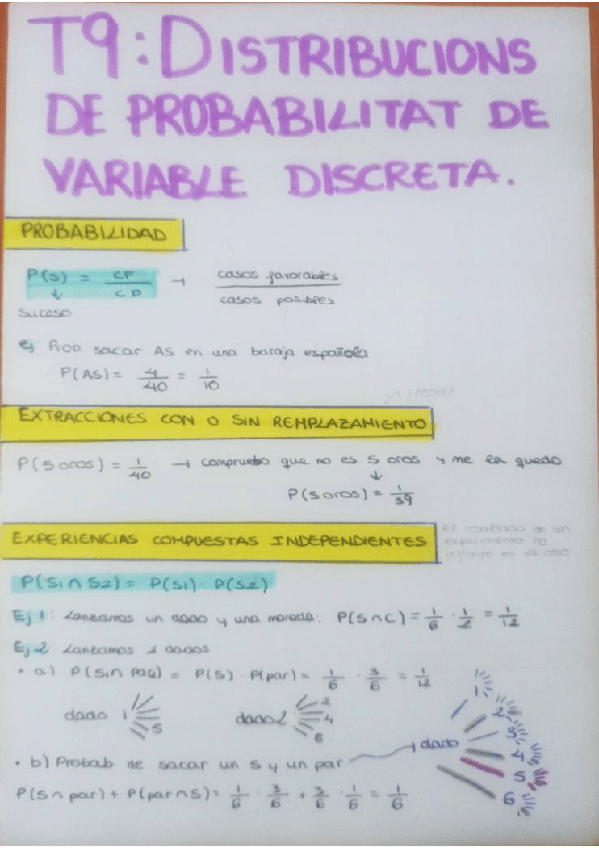 T9: DISTRIBUCIONS
DE PROBABILITAT DE
VARIABLE DISCRETA.
PROBABILIDAD
P(S) = CF/CP → casos favorables/casos posibles
↓
suceso
Ej Prob sacar AS en una baraja española
P(AS) = 4/40 = 1/10
EXTRACCIONES CON O SIN REMPLAZAMIENTO
P(5 oros) = 1/40 → compruebo que no es 5 oros y me la quedo
↓
P(5 oros) = 1/39
EXPERIENCIAS COMPUESTAS INDEPENDIENTES
el resultado de un
experimento no
influye en el otro
P(S1 ∩ S2) = P(S1) · P(S2)
Ej 1: Lanzamos un dado y una moneda: P(5∩C) = 1/6 · 1/2 = 1/12
Ej 2: Lanzamos 2 dados
• a) P(5 ∩ par) = P(5) · P(par) = 1/6 · 3/6 = 1/12
dado 1 5
dado 2 2 4 6
• b) Probab de sacar un 5 y un par
P(5 ∩ par) + P(par ∩ 5) = 1/6 · 3/6 + 3/6 · 1/6 = 1/6
1 dado
1
2
3
4
5
6